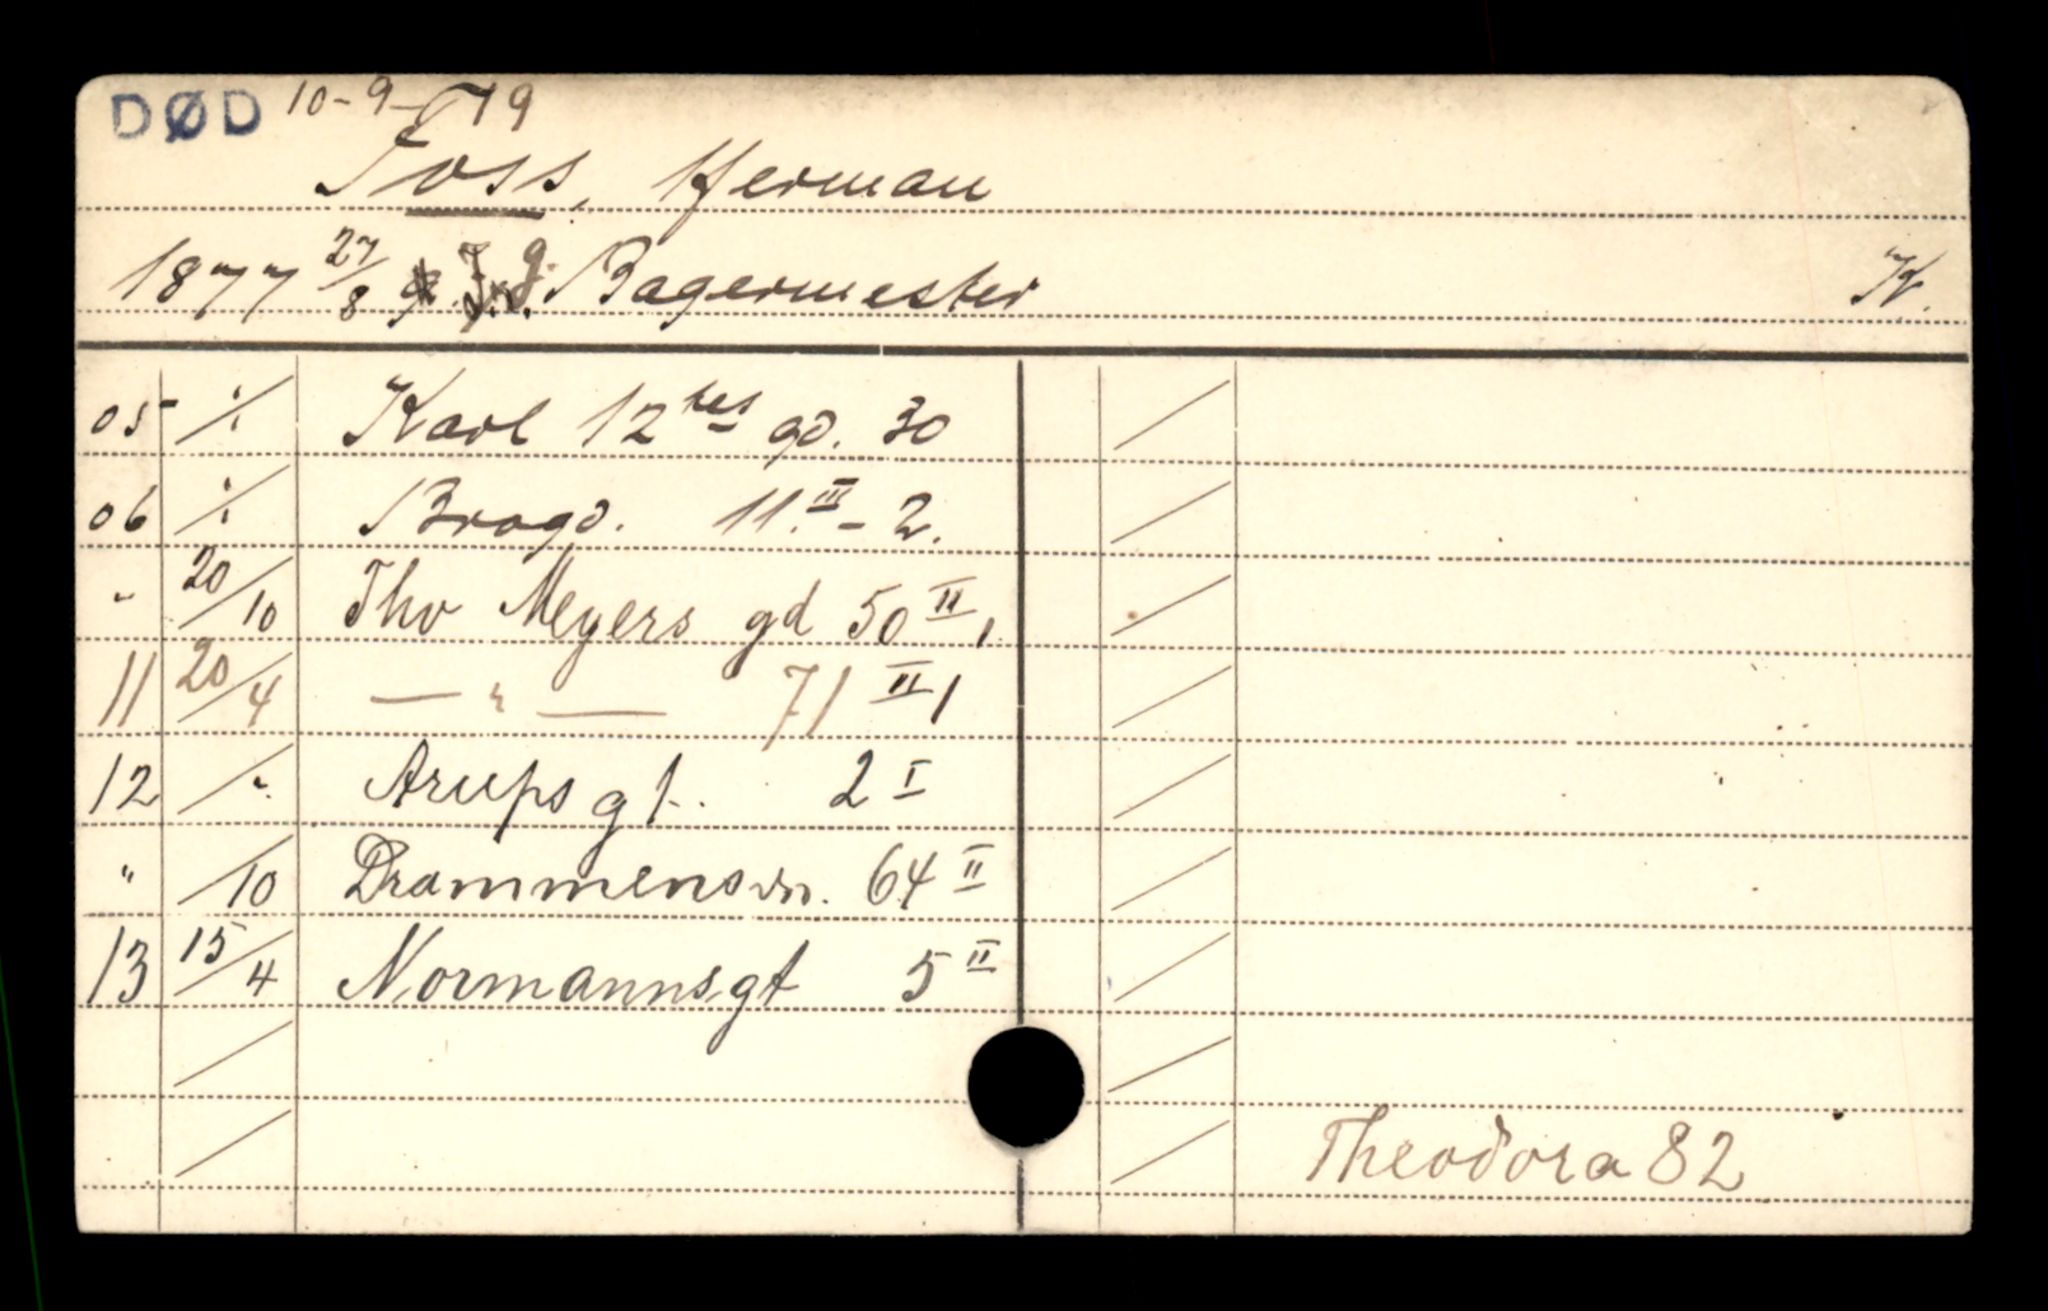 DØD 10-9-19
Foss, Herman
1877 27/8 g. Bagermester K.
05 ./. Karl 12tes gd. 30
06 ./. Brogd. 11. III - 2.
" 20/10 Thv Meyers gd 50 II 1
11 20/4 — " — 71 II 1
12 /. Arups gt. 2 I
" /10 Drammensvn. 64 II
13 15/4 Normannsgt 5 II
Theodora 82